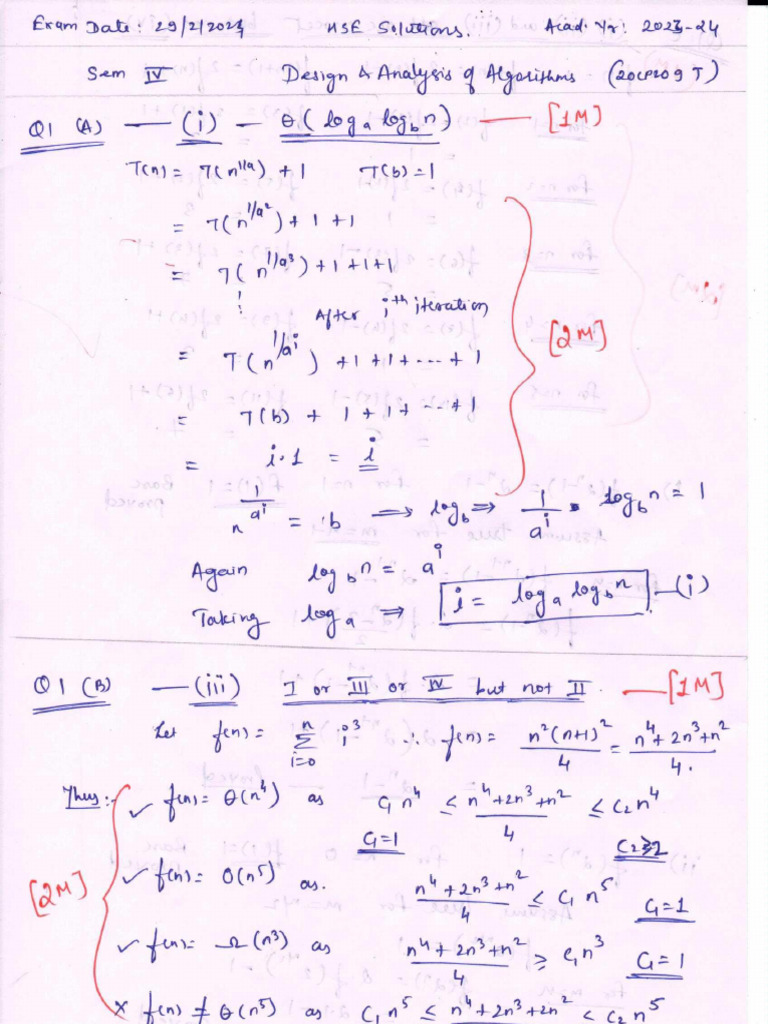 Exam Date: 29/2/2024 MSE Solutions. Acad. Yr: 2023-24
Sem IV Design & Analysis of Algorithms (20CP209T)
Q1 (A) — (i) — θ(log_a log_b n) — [1M]
T(n) = T(n^{1/a}) + 1 T(b) = 1
= T(n^{1/a^2}) + 1 + 1
= T(n^{1/a^3}) + 1 + 1 + 1
After i^{th} iteration
[2M]
= T(n^{1/a^i}) + 1 + 1 + ... + 1
= T(b) + 1 + 1 + ... + 1
= i.1 = i
n^{1/a^i} = b ⇒ log_b ⇒ 1/a^i . log_b n = 1
Again log_b n = a^i
Taking log_a ⇒ i = log_a log_b n — (i)
Q1 (B) — (iii) I or III or IV but not II. — [1M]
Let f(n) = n Σ i=0 i^3 ∴ f(n) = n^2(n+1)^2/4 = n^4 + 2n^3 + n^2/4.
Thus:- ✓ f(n) = θ(n^4) as C_1 n^4 ≤ n^4 + 2n^3 + n^2/4 ≤ C_2 n^4
C_1=1
[2M]
✓ f(n) = O(n^5) as. n^4 + 2n^3 + n^2/4 ≤ C_1 n^5 C_1=1
✓ f(n) = Ω(n^3) as n^4 + 2n^3 + n^2/4 ≥ C_1 n^3 C_1=1
x f(n) ≠ θ(n^5) as C_1 n^5 ≤ n^4 + 2n^3 + 2n^2 ≤ C_2 n^5